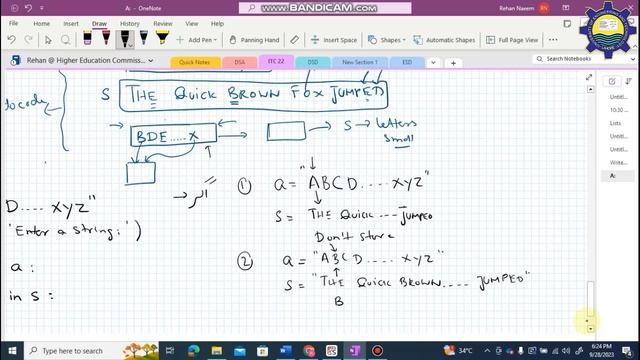 A: - OneNote
RECORDED WITH
WWW.BANDICAM.COM
Rehan Naeem
File Home Insert Draw History Review View Help
Add Pen Insert Space Shapes Automatic Shapes Convert
Rehan @ Higher Education Commiss...
Quick Notes DSA ITC 22 DSD New Section 1 ESD
Search Notebooks
Add Page
to code
S THE QUICK BROWN FOX JUMPED
BDE.....X
S → letters
small
D .... XYZ"
'Enter a string:')
a:
in s:
① a = "ABCD....XYZ"
S = THE QUICK --- JUMPED
Don't store
② a = "ABCD.... XYZ"
S = "THE QUICK BROWN.... JUMPED"
B
Untitl...
10:30 ...
Untitl...
Untitl...
Untitl...
Untitl...
A:
Search
34°C
6:24 PM
9/28/2023